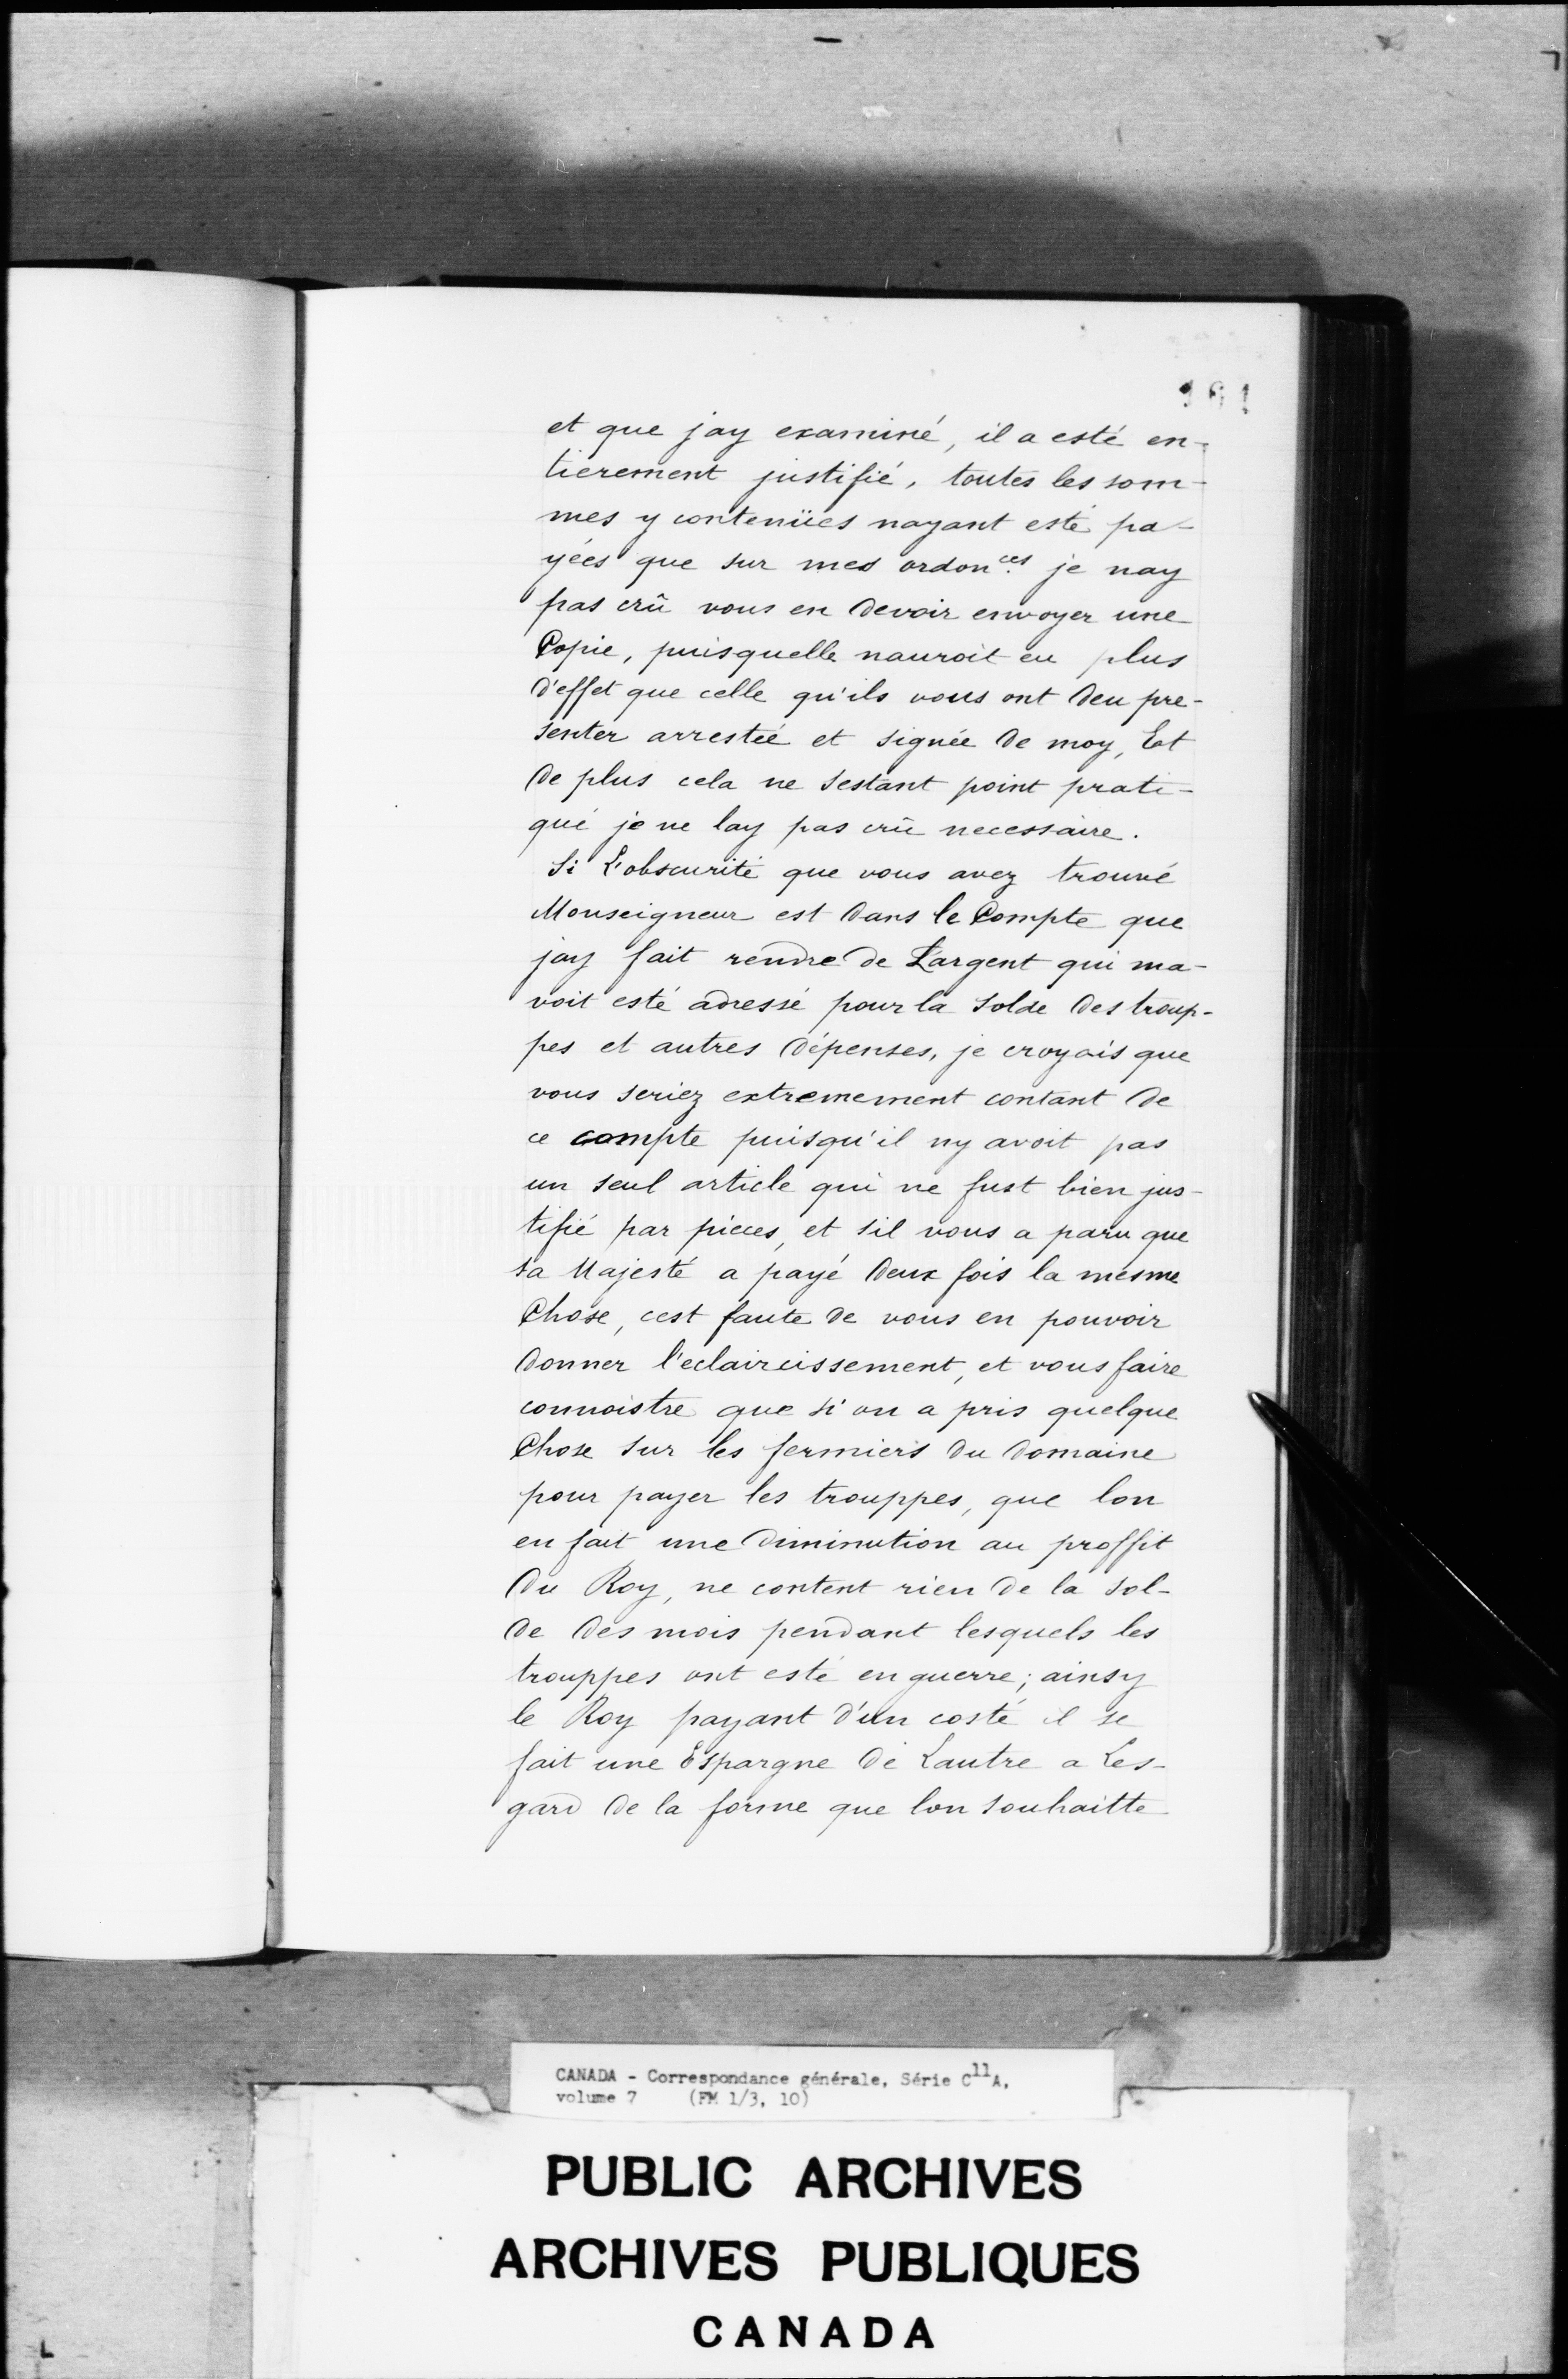 161
et que jay examiné, il a esté en-
tierement justifié, toutes les som-
mes y contenües nayant esté pa-
yées que sur mes ordon.ces je nay
pas crû vous en devoir envoyer une
Copie, puisquelle nauroit eu plus
d'effet que celle qu'ils vous ont deu pre-
senter arrestée et signée de moy, Et
de plus cela ne sestant point prati-
qué je ne lay pas crû necessaire.
Si L'obscurité que vous avez trouvé
Monseigneur est dans le Compte que
jay fait rendre de L'argent qui ma-
voit esté adressé pour la solde des troup-
pes et autres dépenses, je croyois que
vous seriez extremement contant de
ce compte puisqu'il ny avoit pas
un seul article qui ne fust bien jus-
tifié par pieces, et sil vous a paru que
sa Majesté a payé deux fois la mesme
Chose, cest faute de vous en pouvoir
donner l'eclaircissement, et vous faire
connoistre que si on a pris quelque
Chose sur les fermiers du domaine
pour payer les trouppes, que lon
en fait une diminution au proffit
du Roy, ne content rien de la sol-
de des mois pendant lesquels les
trouppes ont esté en guerre; ainsy
le Roy payant d'un costé il se
fait une Espargne de Lautre a Les-
gard de la forme que lon souhaitte
CANADA - Correspondance générale, Série C11A,
volume 7 (FM 1/3, 10)
PUBLIC ARCHIVES
ARCHIVES PUBLIQUES
CANADA